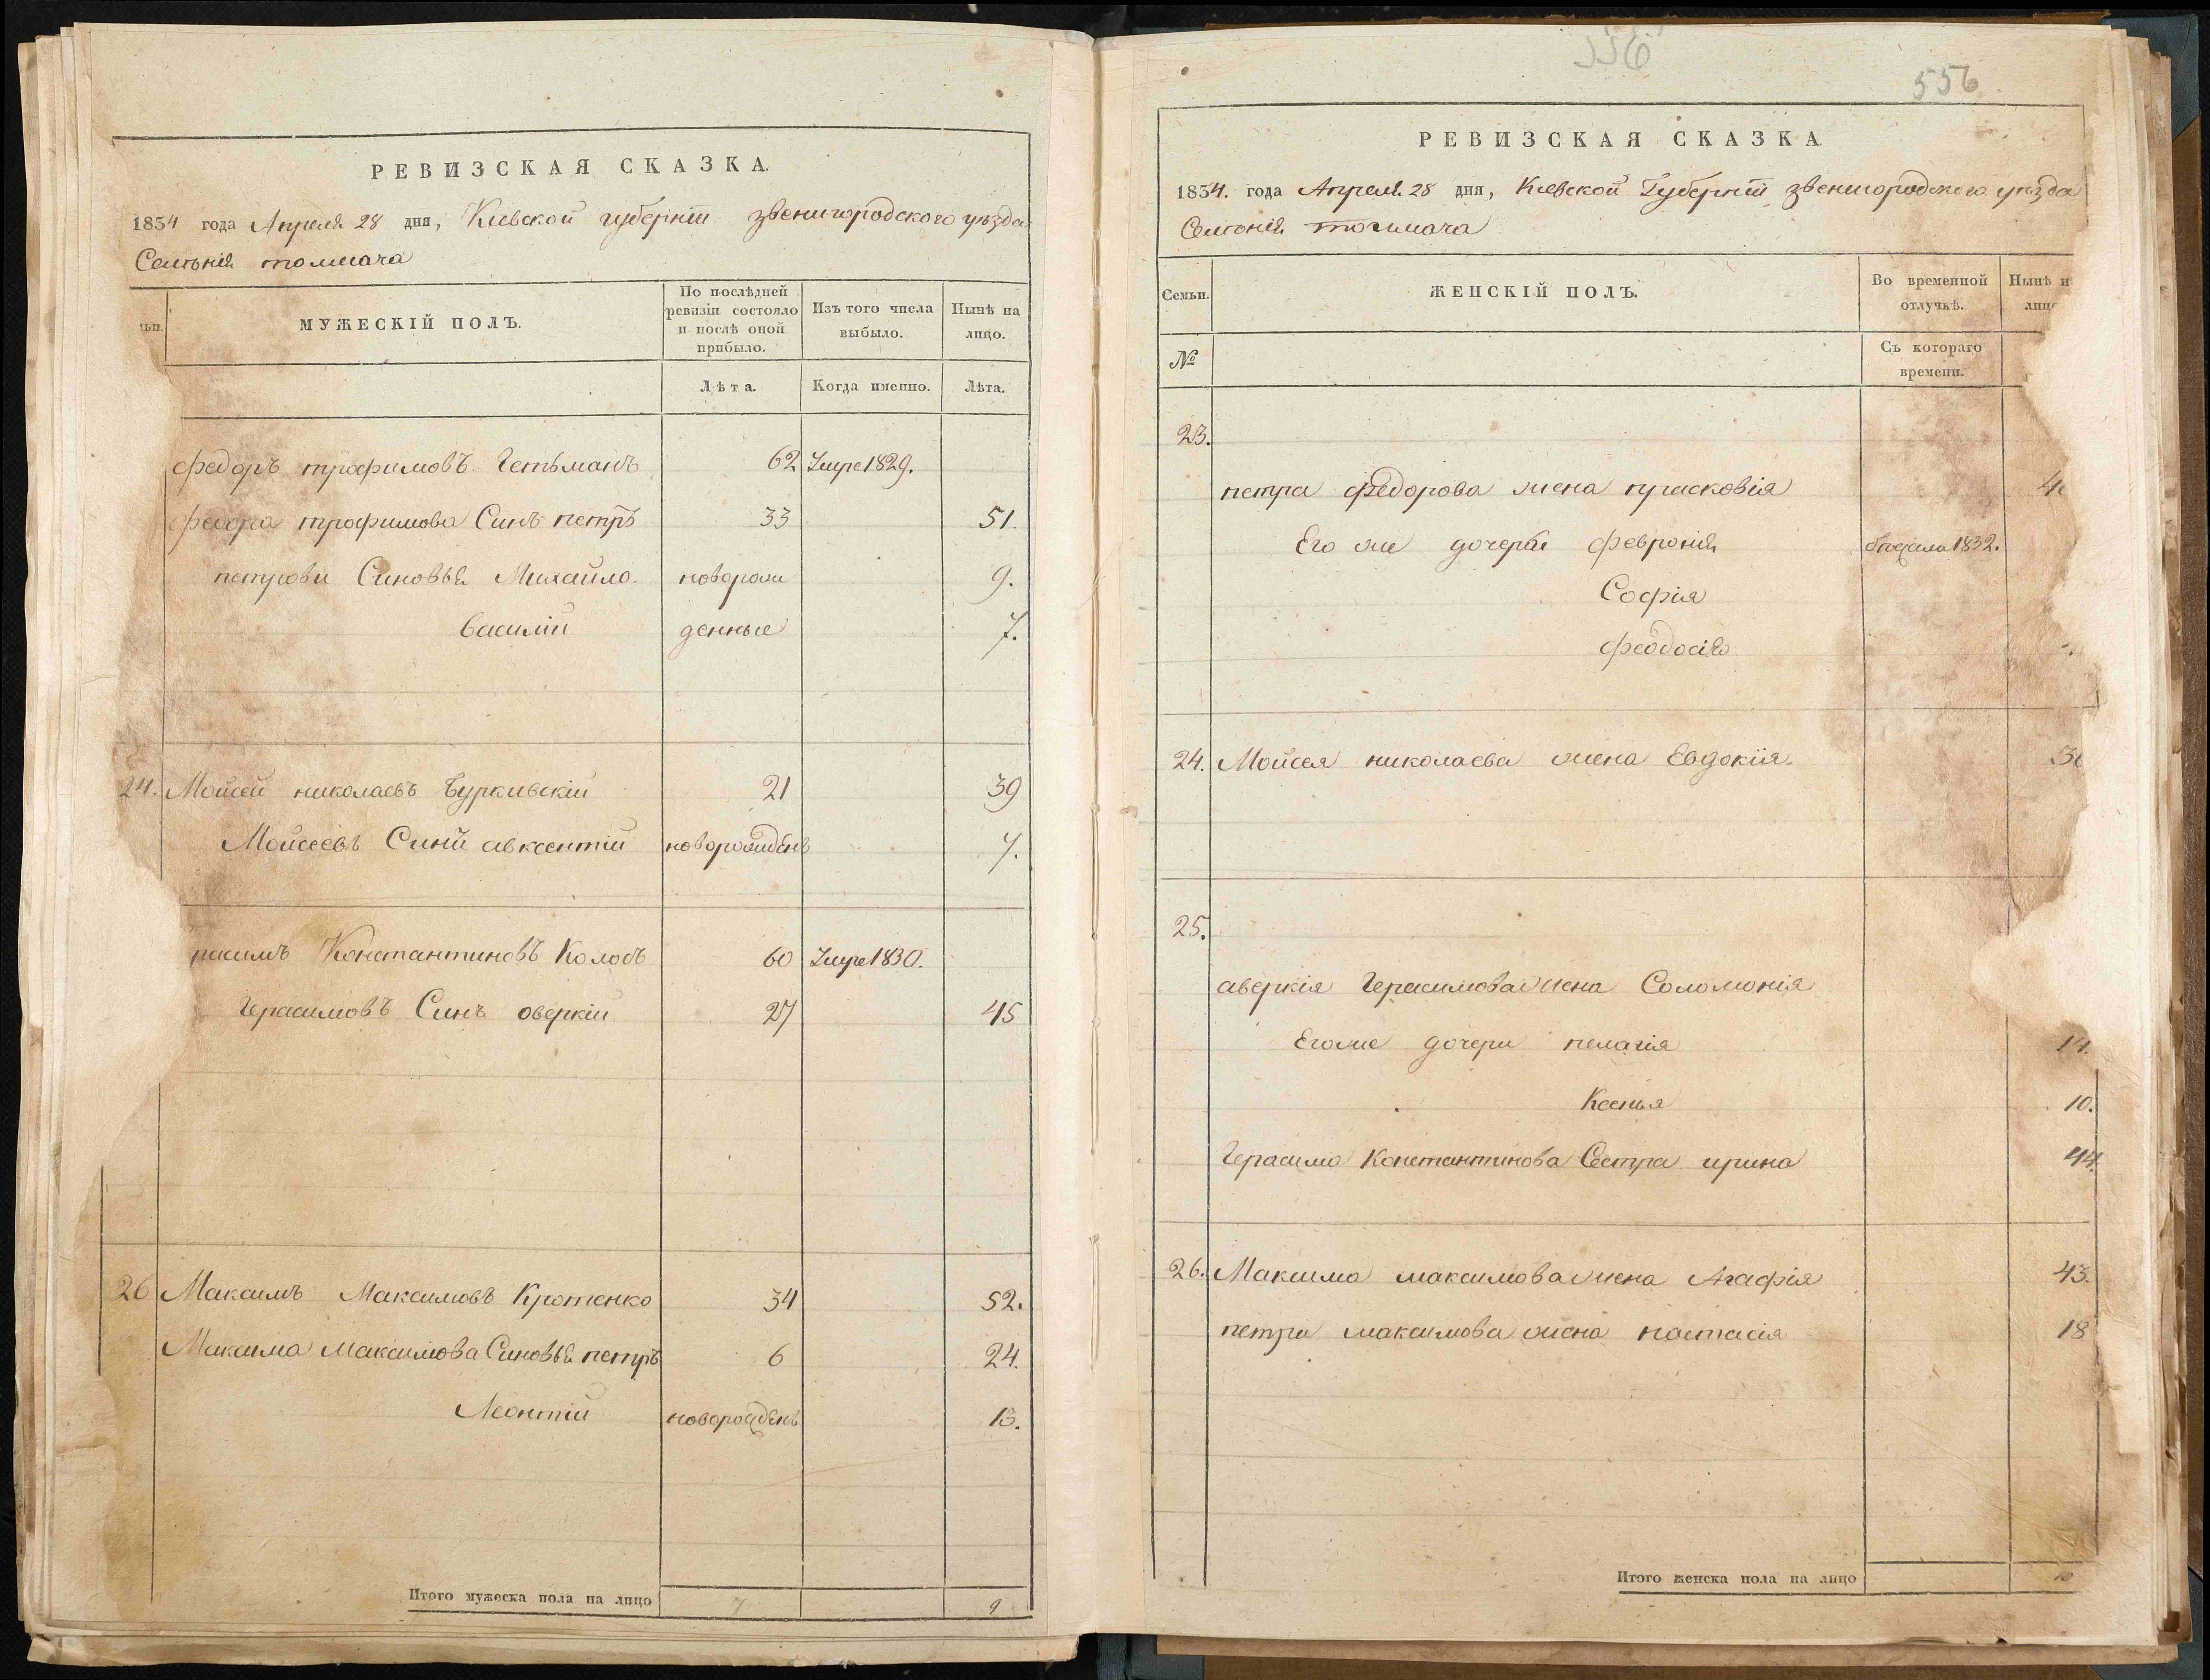 РЕВИЗСКАЯ СКАЗКА.
1834 года Апреля 28 дня, Киевской губернiи звенигородского уѣзда
Селенiя толмача
МУЖЕСКIЙ ПОЛЪ.
По послѣдней ревизiи состояло и послѣ оной прибыло.
Изъ того числа выбыло.
Нынѣ на лицо.
Лѣта.
Когда именно.
Лѣта.
федоръ трофимовъ Гетьманъ 62 Умре 1829.
федора трофимова Синъ петръ 33 51.
петрови Синовья Михайло новорож 9.
василiй денные 7.
24. Мойсей николаевъ Буркивскiй 21 39
Мойсеевъ Синъ авксентiй новорожденъ 7.
расимъ Константиновъ Колобъ 60 Умре 1830.
Герасимовъ Синъ оверкiй 27 45
26 Максимъ Максимовъ Кротенко 34 52.
Максима Максимова Синовья петръ 6 24.
Леонтiй новорожденъ 13.
Итого мужеска пола на лицо 7 9
556
556
РЕВИЗСКАЯ СКАЗКА
1834. года Апреля 28 дня, Киевской Губернiи звенигородского уѣзда
Селенiя толмача
Семьи.
ЖЕНСКIЙ ПОЛЪ.
Во временной отлучкѣ.
Нынѣ н
лицо
№
Съ котораго времени.
23.
петра федорова жена прасковiя 4
Его же дочери феврония 1832.
Софiя
феодосiя
24. Мойсея николаева жена Евдокiя. 3
25.
аверкiя Герасимова жена Соломонiя
Его же дочери пелагiя 14.
Ксенья 10.
Герасима Константинова Сестра ирина 44.
26. Максима максимова жена Агафiя 43.
петра максимова жена настасiя 18
Итого женска пола на лицо